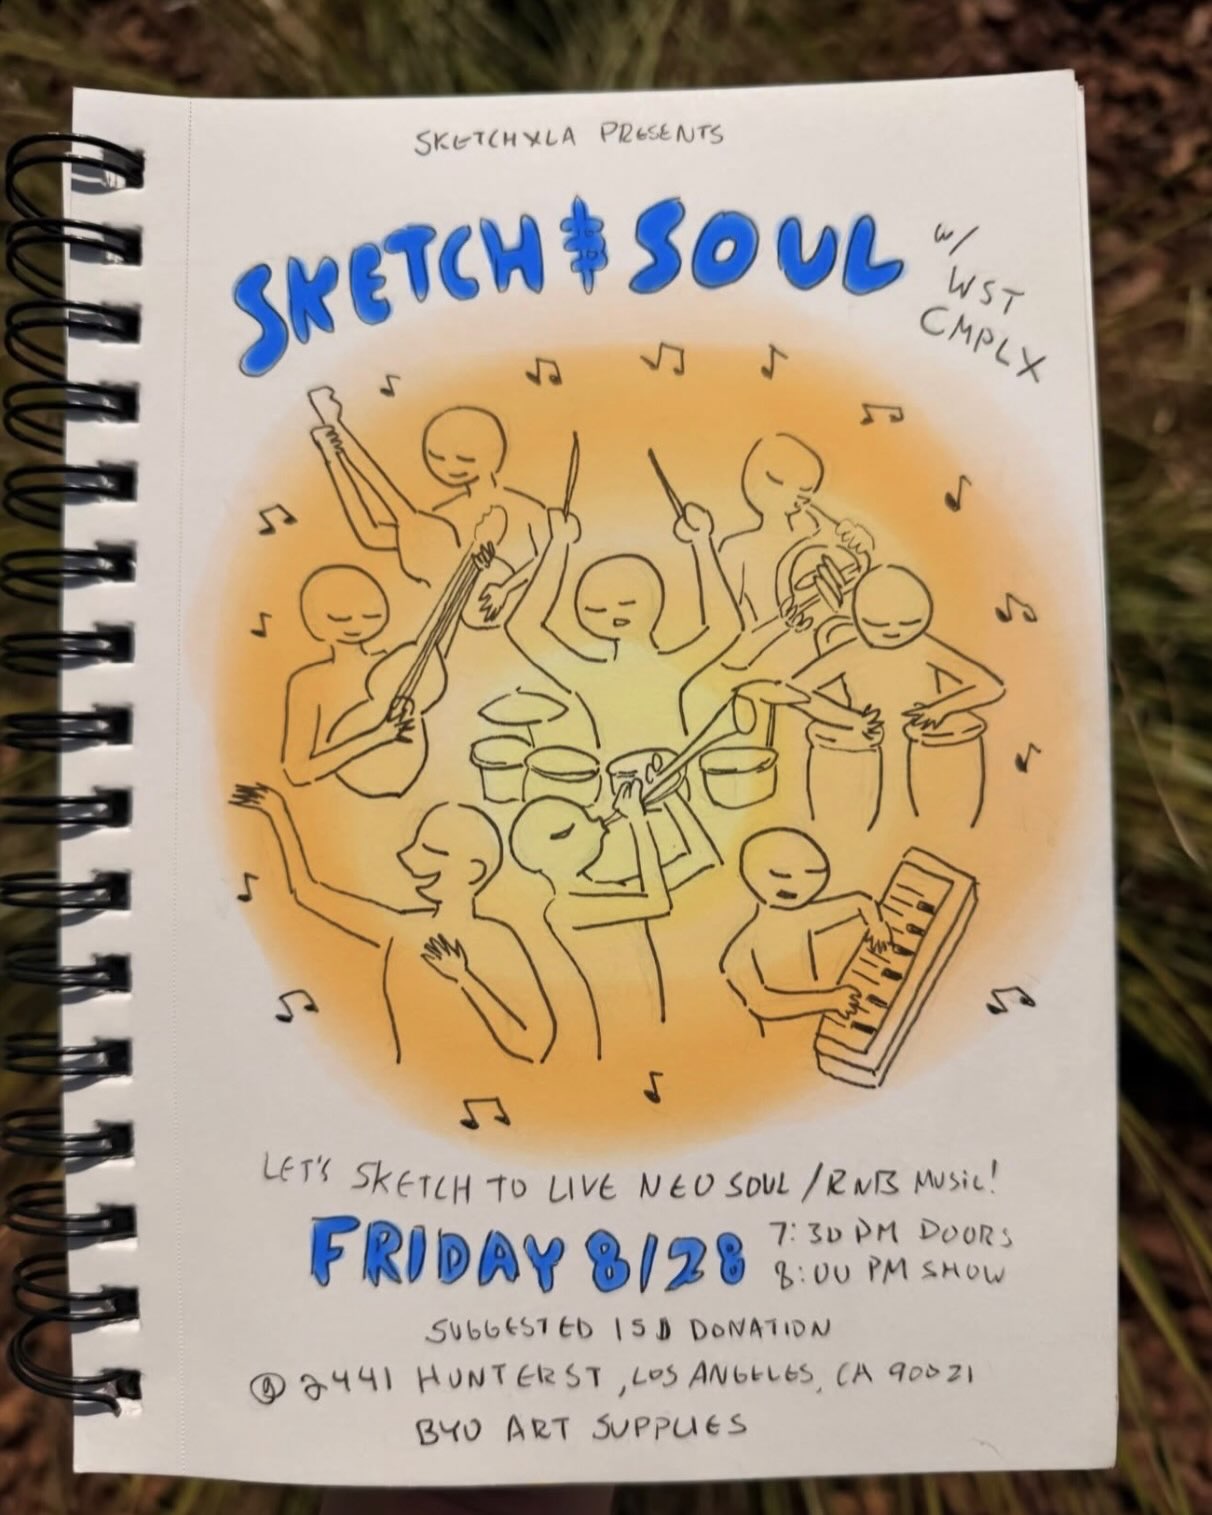 SKETCHXLA PRESENTS
SKETCH & SOUL
w/
WST
CMPLX
LET'S SKETCH TO LIVE NEO SOUL / RNB MUSIC!
FRIDAY 8/28
7:30 PM DOORS
8:00 PM SHOW
SUGGESTED 15$ DONATION
@ 2441 HUNTER ST, LOS ANGELES, CA 90021
BYO ART SUPPLIES